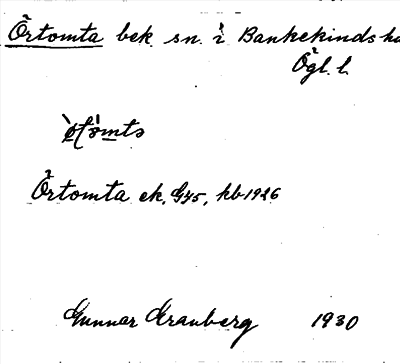 Örtomta bek. sn. i Bankekinds
Ögl. l.
Örtomta ek. G45, kb 1926
Gunnar Granberg 1930